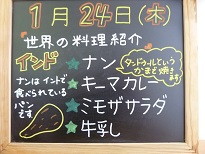 1月24日(木)
世界の料理紹介
インド
ナンはインドで
食べられている
パン
です
★ナン
★キーマカレー
★ミモザサラダ
★牛乳
タンドゥールという
かまどで焼き
ます